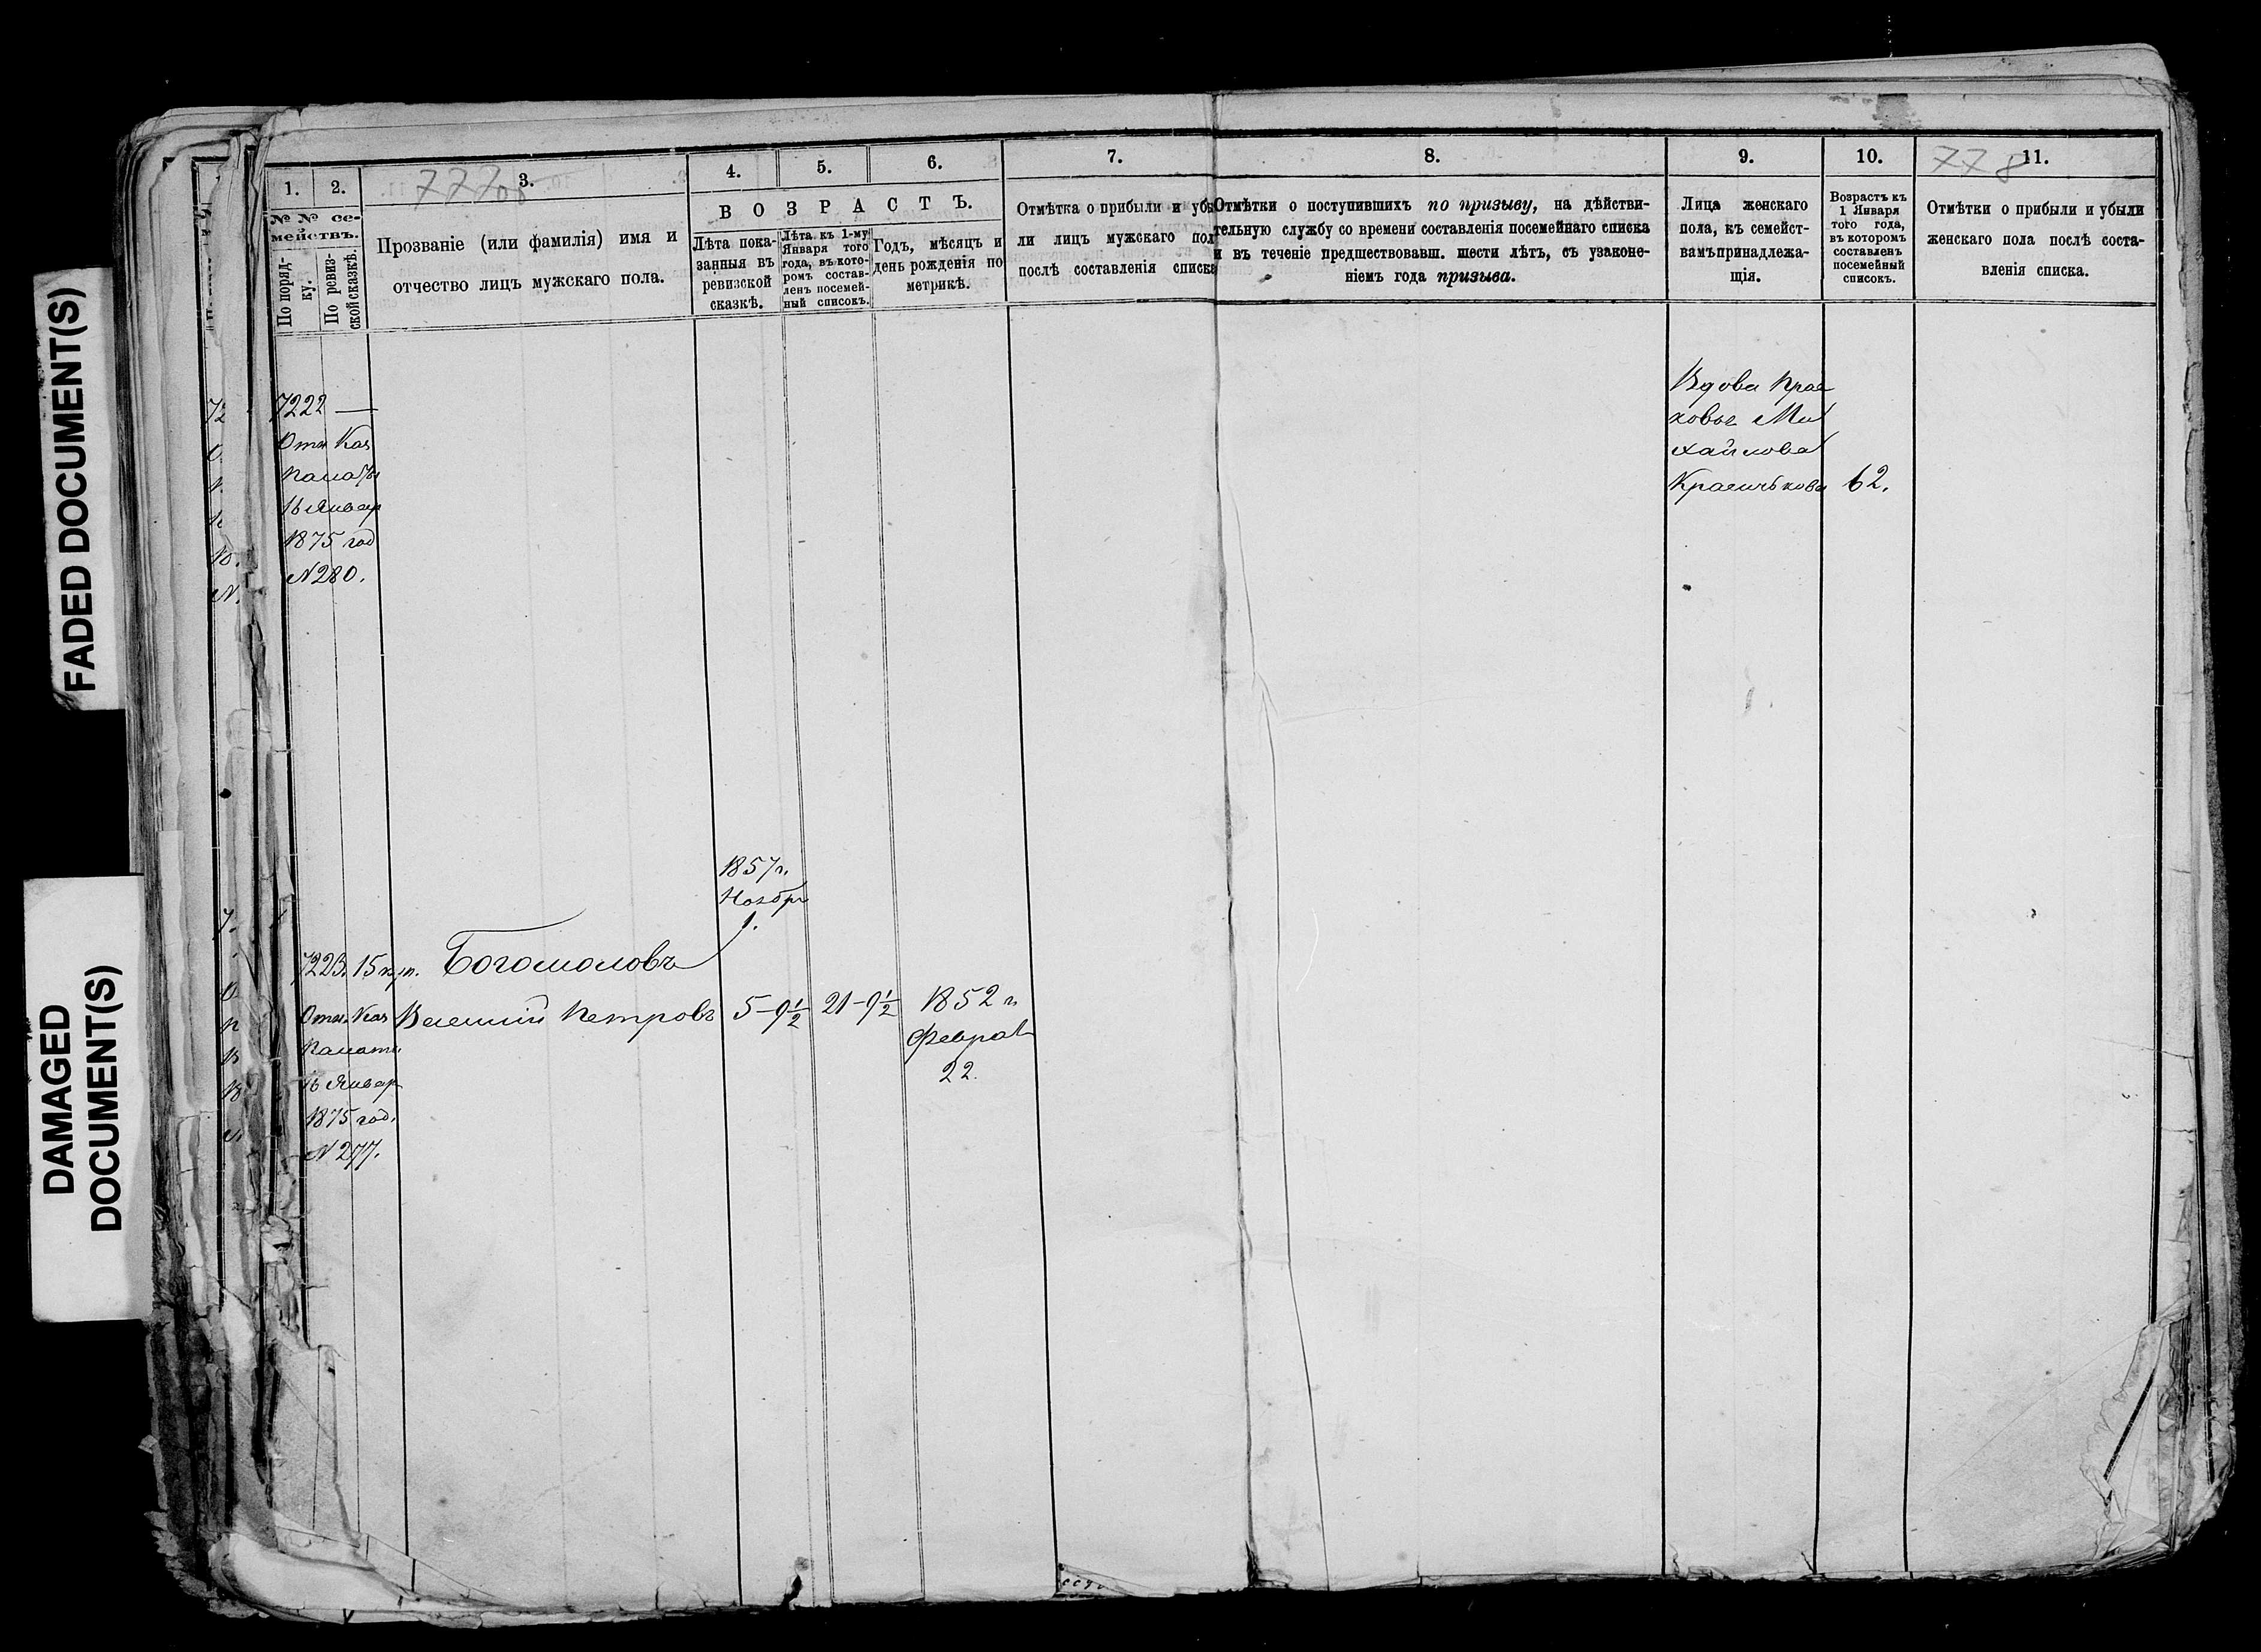 FADED DOCUMENT(S)
DAMAGED
DOCUMENT(S)
1.
2.
3.
4.
5.
6.
7.
8.
9.
10.
11.
777об
778
№ № се-
мействъ.
По поряд-
ку.
По ревиз-
ской сказкѣ.
Прозваніе (или фамилія) имя и
отчество лицъ мужскаго пола.
ВОЗРАСТЪ.
Лѣта пока-
занныя въ
ревизской
сказкѣ.
Лѣта къ 1-му
Января того
года, въ кото-
ромъ состав-
ленъ посемей-
ный списокъ.
Годъ, мѣсяцъ и
день рожденія по
метрикѣ.
Отмѣтка о прибыли и убы
ли лицъ мужскаго пол
послѣ составленія списка
Отмѣтки о поступившихъ по призыву, на дѣйстви-
тельную службу со времени составленія посемейнаго списка
и въ теченіе предшествовавш. шести лѣтъ, съ узаконе-
ніемъ года призыва.
Лица женскаго
пола, къ семейст-
вамъ принадлежа-
щія.
Возрастъ къ
1 Января
того года,
въ которомъ
составленъ
посемейный
списокъ.
Отмѣтки о прибыли и убыли
женскаго пола послѣ соста-
вленія списка.
7222 —
Отн. Каз
Палаты
16 Январ
1875 год
N 280.
Вдова Прас
ковья Ми
хайлова
62.
1857 г.
Ноябр
1.
7223. 15
Богомоловъ
Отн. Каз
Василій Петровъ
5-9½
21-9½
1852 г.
Феврал
22.
Палаты
16 Январ
1875 год.
N 277.